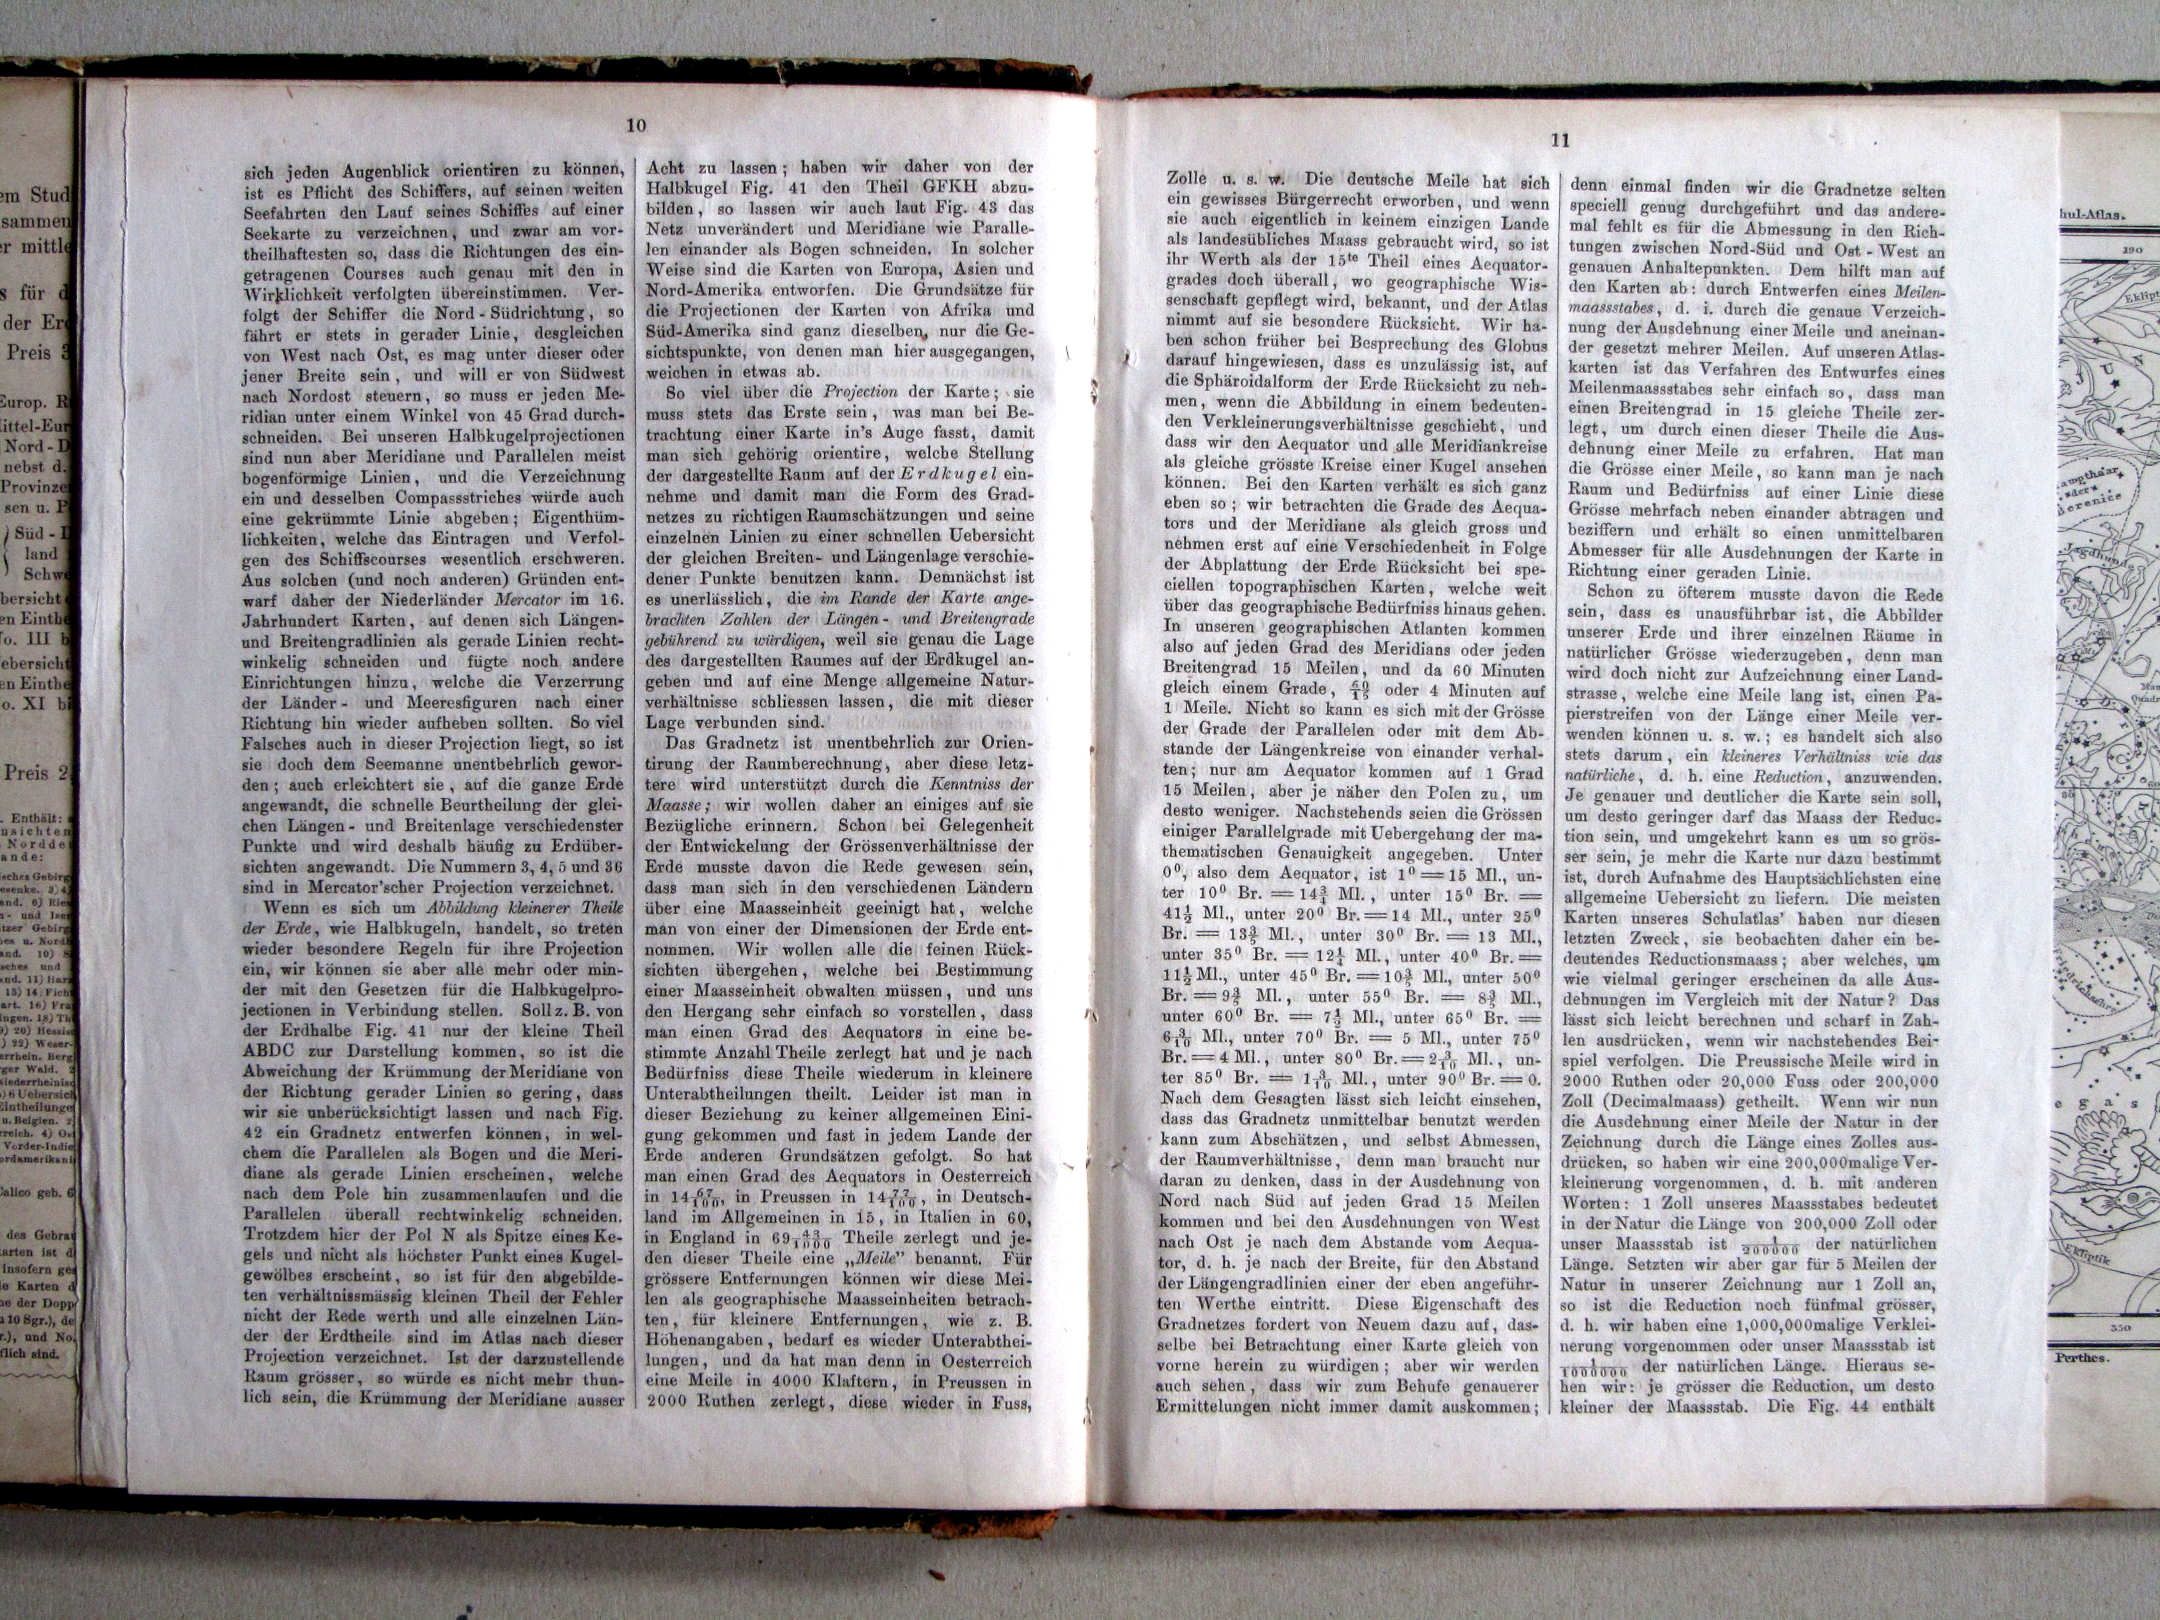 10
sich jeden Augenblick orientiren zu können,
ist es Pflicht des Schiffers, auf seinen weiten
Seefahrten den Lauf seines Schiffes auf einer
Seekarte zu verzeichnen, und zwar am vor-
theilhaftesten so, dass die Richtungen des ein-
getragenen Courses auch genau mit den in
Wirklichkeit verfolgten übereinstimmen. Ver-
folgt der Schiffer die Nord-Südrichtung, so
fährt er stets in gerader Linie, desgleichen
von West nach Ost, es mag unter dieser oder
jener Breite sein, und will er von Südwest
nach Nordost steuern, so muss er jeden Me-
ridian unter einem Winkel von 45 Grad durch-
schneiden. Bei unseren Halbkugelprojectionen
sind nun aber Meridiane und Parallelen meist
bogenförmige Linien, und die Verzeichnung
ein und desselben Compassstriches würde auch
eine gekrümmte Linie abgeben; Eigenthüm-
lichkeiten, welche das Eintragen und Verfol-
gen des Schiffscourses wesentlich erschweren.
Aus solchen (und noch anderen) Gründen ent-
warf daher der Niederländer Mercator im 16.
Jahrhundert Karten, auf denen sich Längen-
und Breitengradlinien als gerade Linien recht-
winkelig schneiden und fügte noch andere
Einrichtungen hinzu, welche die Verzerrung
der Länder- und Meeresfiguren nach einer
Richtung hin wieder aufheben sollten. So viel
Falsches auch in dieser Projection liegt, so ist
sie doch dem Seemanne unentbehrlich gewor-
den; auch erleichtert sie, auf die ganze Erde
angewandt, die schnelle Beurtheilung der glei-
chen Längen- und Breitenlage verschiedenster
Punkte und wird deshalb häufig zu Erdüber-
sichten angewandt. Die Nummern 3, 4, 5 und 36
sind in Mercator'scher Projection verzeichnet.
Wenn es sich um Abbildung kleinerer Theile
der Erde, wie Halbkugeln, handelt, so treten
wieder besondere Regeln für ihre Projection
ein, wir können sie aber alle mehr oder min-
der mit den Gesetzen für die Halbkugelpro-
jectionen in Verbindung stellen. Soll z. B. von
der Erdhalbe Fig. 41 nur der kleine Theil
ABDC zur Darstellung kommen, so ist die
Abweichung der Krümmung der Meridiane von
der Richtung gerader Linien so gering, dass
wir sie unberücksichtigt lassen und nach Fig.
42 ein Gradnetz entwerfen können, in wel-
chem die Parallelen als Bogen und die Meri-
diane als gerade Linien erscheinen, welche
nach dem Pole hin zusammenlaufen und die
Parallelen überall rechtwinkelig schneiden.
Trotzdem hier der Pol N als Spitze eines Ke-
gels und nicht als höchster Punkt eines Kugel-
gewölbes erscheint, so ist für den abgebilde-
ten verhältnissmässig kleinen Theil der Fehler
nicht der Rede werth und alle einzelnen Län-
der der Erdtheile sind im Atlas nach dieser
Projection verzeichnet. Ist der darzustellende
Raum grösser, so würde es nicht mehr thun-
lich sein, die Krümmung der Meridiane ausser
Acht zu lassen; haben wir daher von der
Halbkugel Fig. 41 den Theil GFKH abzu-
bilden, so lassen wir auch laut Fig. 43 das
Netz unverändert und Meridiane wie Paralle-
len einander als Bogen schneiden. In solcher
Weise sind die Karten von Europa, Asien und
Nord-Amerika entworfen. Die Grundsätze für
die Projectionen der Karten von Afrika und
Süd-Amerika sind ganz dieselben, nur die Ge-
sichtspunkte, von denen man hier ausgegangen,
weichen in etwas ab.
So viel über die Projection der Karte; sie
muss stets das Erste sein, was man bei Be-
trachtung einer Karte in's Auge fasst, damit
man sich gehörig orientire, welche Stellung
der dargestellte Raum auf der Erdkugel ein-
nehme und damit man die Form des Grad-
netzes zu richtigen Raumschätzungen und seine
einzelnen Linien zu einer schnellen Uebersicht
der gleichen Breiten- und Längenlage verschie-
dener Punkte benutzen kann. Demnächst ist
es unerlässlich, die im Rande der Karte ange-
brachten Zahlen der Längen- und Breitengrade
gebührend zu würdigen, weil sie genau die Lage
des dargestellten Raumes auf der Erdkugel an-
geben und auf eine Menge allgemeine Natur-
verhältnisse schliessen lassen, die mit dieser
Lage verbunden sind.
Das Gradnetz ist unentbehrlich zur Orien-
tirung der Raumberechnung, aber diese letz-
tere wird unterstützt durch die Kenntniss der
Maasse; wir wollen daher an einiges auf sie
Bezügliche erinnern. Schon bei Gelegenheit
der Entwickelung der Grössenverhältnisse der
Erde musste davon die Rede gewesen sein,
dass man sich in den verschiedenen Ländern
über eine Maasseinheit geeinigt hat, welche
man von einer der Dimensionen der Erde ent-
nommen. Wir wollen alle die feinen Rück-
sichten übergehen, welche bei Bestimmung
einer Maasseinheit obwalten müssen, und uns
den Hergang sehr einfach so vorstellen, dass
man einen Grad des Aequators in eine be-
stimmte Anzahl Theile zerlegt hat und je nach
Bedürfniss diese Theile wiederum in kleinere
Unterabtheilungen theilt. Leider ist man in
dieser Beziehung zu keiner allgemeinen Eini-
gung gekommen und fast in jedem Lande der
Erde anderen Grundsätzen gefolgt. So hat
man einen Grad des Aequators in Oesterreich
in 14 67/100, in Preussen in 14 77/100, in Deutsch-
land im Allgemeinen in 15, in Italien in 60,
in England in 69 43/1000 Theile zerlegt und je-
den dieser Theile eine „Meile” benannt. Für
grössere Entfernungen können wir diese Mei-
len als geographische Maasseinheiten betrach-
ten, für kleinere Entfernungen, wie z. B.
Höhenangaben, bedarf es wieder Unterabthei-
lungen, und da hat man denn in Oesterreich
eine Meile in 4000 Klaftern, in Preussen in
2000 Ruthen zerlegt, diese wieder in Fuss,
11
Zolle u. s. w. Die deutsche Meile hat sich
ein gewisses Bürgerrecht erworben, und wenn
sie auch eigentlich in keinem einzigen Lande
als landesübliches Maass gebraucht wird, so ist
ihr Werth als der 15te Theil eines Aequator-
grades doch überall, wo geographische Wis-
senschaft gepflegt wird, bekannt, und der Atlas
nimmt auf sie besondere Rücksicht. Wir ha-
ben schon früher bei Besprechung des Globus
darauf hingewiesen, dass es unzulässig ist, auf
die Sphäroidalform der Erde Rücksicht zu neh-
men, wenn die Abbildung in einem bedeuten-
den Verkleinerungsverhältnisse geschieht, und
dass wir den Aequator und alle Meridiankreise
als gleiche grösste Kreise einer Kugel ansehen
können. Bei den Karten verhält es sich ganz
eben so; wir betrachten die Grade des Aequa-
tors und der Meridiane als gleich gross und
nehmen erst auf eine Verschiedenheit in Folge
der Abplattung der Erde Rücksicht bei spe-
ciellen topographischen Karten, welche weit
über das geographische Bedürfniss hinaus gehen.
In unseren geographischen Atlanten kommen
also auf jeden Grad des Meridians oder jeden
Breitengrad 15 Meilen, und da 60 Minuten
gleich einem Grade, 60/15 oder 4 Minuten auf
1 Meile. Nicht so kann es sich mit der Grösse
der Grade der Parallelen oder mit dem Ab-
stande der Längenkreise von einander verhal-
ten; nur am Aequator kommen auf 1 Grad
15 Meilen, aber je näher den Polen zu, um
desto weniger. Nachstehends seien die Grössen
einiger Parallelgrade mit Uebergehung der ma-
thematischen Genauigkeit angegeben. Unter
0⁰, also dem Aequator, ist 1⁰ = 15 Ml., un-
ter 10⁰ Br. = 14¾ Ml., unter 15⁰ Br. =
41½ Ml., unter 20⁰ Br. = 14 Ml., unter 25⁰
Br. = 13⅗ Ml., unter 30⁰ Br. = 13 Ml.,
unter 35⁰ Br. = 12¼ Ml., unter 40⁰ Br. =
11½ Ml., unter 45⁰ Br. = 10⅗ Ml., unter 50⁰
Br. = 9⅗ Ml., unter 55⁰ Br. = 8⅗ Ml.,
unter 60⁰ Br. = 7½ Ml., unter 65⁰ Br. =
6 3/10 Ml., unter 70⁰ Br. = 5 Ml., unter 75⁰
Br. = 4 Ml., unter 80⁰ Br. = 2 3/10 Ml., un-
ter 85⁰ Br. = 1 3/10 Ml., unter 90⁰ Br. = 0.
Nach dem Gesagten lässt sich leicht einsehen,
dass das Gradnetz unmittelbar benutzt werden
kann zum Abschätzen, und selbst Abmessen,
der Raumverhältnisse, denn man braucht nur
daran zu denken, dass in der Ausdehnung von
Nord nach Süd auf jeden Grad 15 Meilen
kommen und bei den Ausdehnungen von West
nach Ost je nach dem Abstande vom Aequa-
tor, d. h. je nach der Breite, für den Abstand
der Längengradlinien einer der eben angeführ-
ten Werthe eintritt. Diese Eigenschaft des
Gradnetzes fordert von Neuem dazu auf, das-
selbe bei Betrachtung einer Karte gleich von
vorne herein zu würdigen; aber wir werden
auch sehen, dass wir zum Behufe genauerer
Ermittelungen nicht immer damit auskommen;
denn einmal finden wir die Gradnetze selten
speciell genug durchgeführt und das andere-
mal fehlt es für die Abmessung in den Rich-
tungen zwischen Nord-Süd und Ost-West an
genauen Anhaltepunkten. Dem hilft man auf
den Karten ab: durch Entwerfen eines Meilen-
maassstabes, d. i. durch die genaue Verzeich-
nung der Ausdehnung einer Meile und aneinan-
der gesetzt mehrer Meilen. Auf unseren Atlas-
karten ist das Verfahren des Entwurfes eines
Meilenmaassstabes sehr einfach so, dass man
einen Breitengrad in 15 gleiche Theile zer-
legt, um durch einen dieser Theile die Aus-
dehnung einer Meile zu erfahren. Hat man
die Grösse einer Meile, so kann man je nach
Raum und Bedürfniss auf einer Linie diese
Grösse mehrfach neben einander abtragen und
beziffern und erhält so einen unmittelbaren
Abmesser für alle Ausdehnungen der Karte in
Richtung einer geraden Linie.
Schon zu öfterem musste davon die Rede
sein, dass es unausführbar ist, die Abbilder
unserer Erde und ihrer einzelnen Räume in
natürlicher Grösse wiederzugeben, denn man
wird doch nicht zur Aufzeichnung einer Land-
strasse, welche eine Meile lang ist, einen Pa-
pierstreifen von der Länge einer Meile ver-
wenden können u. s. w.; es handelt sich also
stets darum, ein kleineres Verhältniss wie das
natürliche, d. h. eine Reduction, anzuwenden.
Je genauer und deutlicher die Karte sein soll,
um desto geringer darf das Maass der Reduc-
tion sein, und umgekehrt kann es um so grös-
ser sein, je mehr die Karte nur dazu bestimmt
ist, durch Aufnahme des Hauptsächlichsten eine
allgemeine Uebersicht zu liefern. Die meisten
Karten unseres Schulatlas' haben nur diesen
letzten Zweck, sie beobachten daher ein be-
deutendes Reductionsmaass; aber welches, um
wie vielmal geringer erscheinen da alle Aus-
dehnungen im Vergleich mit der Natur? Das
lässt sich leicht berechnen und scharf in Zah-
len ausdrücken, wenn wir nachstehendes Bei-
spiel verfolgen. Die Preussische Meile wird in
2000 Ruthen oder 20,000 Fuss oder 200,000
Zoll (Decimalmaass) getheilt. Wenn wir nun
die Ausdehnung einer Meile der Natur in der
Zeichnung durch die Länge eines Zolles aus-
drücken, so haben wir eine 200,000malige Ver-
kleinerung vorgenommen, d. h. mit anderen
Worten: 1 Zoll unseres Maassstabes bedeutet
in der Natur die Länge von 200,000 Zoll oder
unser Maassstab ist 1/200000 der natürlichen
Länge. Setzten wir aber gar für 5 Meilen der
Natur in unserer Zeichnung nur 1 Zoll an,
so ist die Reduction noch fünfmal grösser,
d. h. wir haben eine 1,000,000malige Verklei-
nerung vorgenommen oder unser Maassstab ist
1/1000000 der natürlichen Länge. Hieraus se-
hen wir: je grösser die Reduction, um desto
kleiner der Maassstab. Die Fig. 44 enthält
hul-Atlas.
190
Ekliptik
350
Perthes.